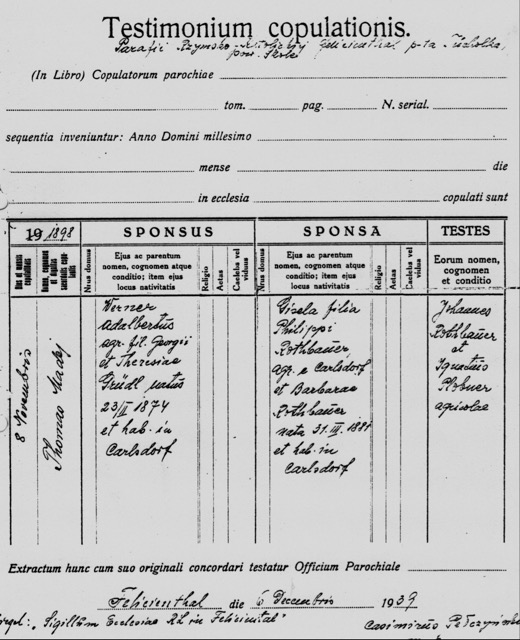 Testimonium copulationis.
Parafii Rzymsko-Katolickiej Felicienthal, p-ta
pow. Skole
(In Libro) Copulatorum parochiae
tom. pag. N. serial.
sequentia inveniuntur: Anno Domini millesimo
mense die
in ecclesia copulati sunt
19 1898 SPONSUS SPONSA TESTES
Dies et mensis copulationis
Nomen, cognomen et dignitas sacerdotis copulantis
Nrus domus
Ejus ac parentum nomen, cognomen atque conditio; item ejus locus nativitatis
Religio
Aetas
Caelebs vel viduus
Nrus domus
Ejus ac parentum nomen, cognomen atque conditio; item ejus locus nativitatis
Religio
Aetas
Caelebs vel vidua
Eorum nomen, cognomen et conditio
8 Novembris
Thomas Madej
Werner
Adalbertus
agr. fil. Georgii
et Theresiae
Gründl natus
23/II 1874
et hab. in
Carlsdorf
Gisela filia
Philippi
Rothbauer,
agr. e Carlsdorf
et Barbarae
Rothbauer
nata 31. III. 1881
et hab. in
Carlsdorf
Johannes
Rothbauer
et
Ignatius
Plobner
agricolae
Extractum hunc cum suo originali concordari testatur Officium Parochiale
Felicienthal die 6 Decembris 1939
"Sigillum Ecclesiae R.L. in Felicienthal" Casimirus